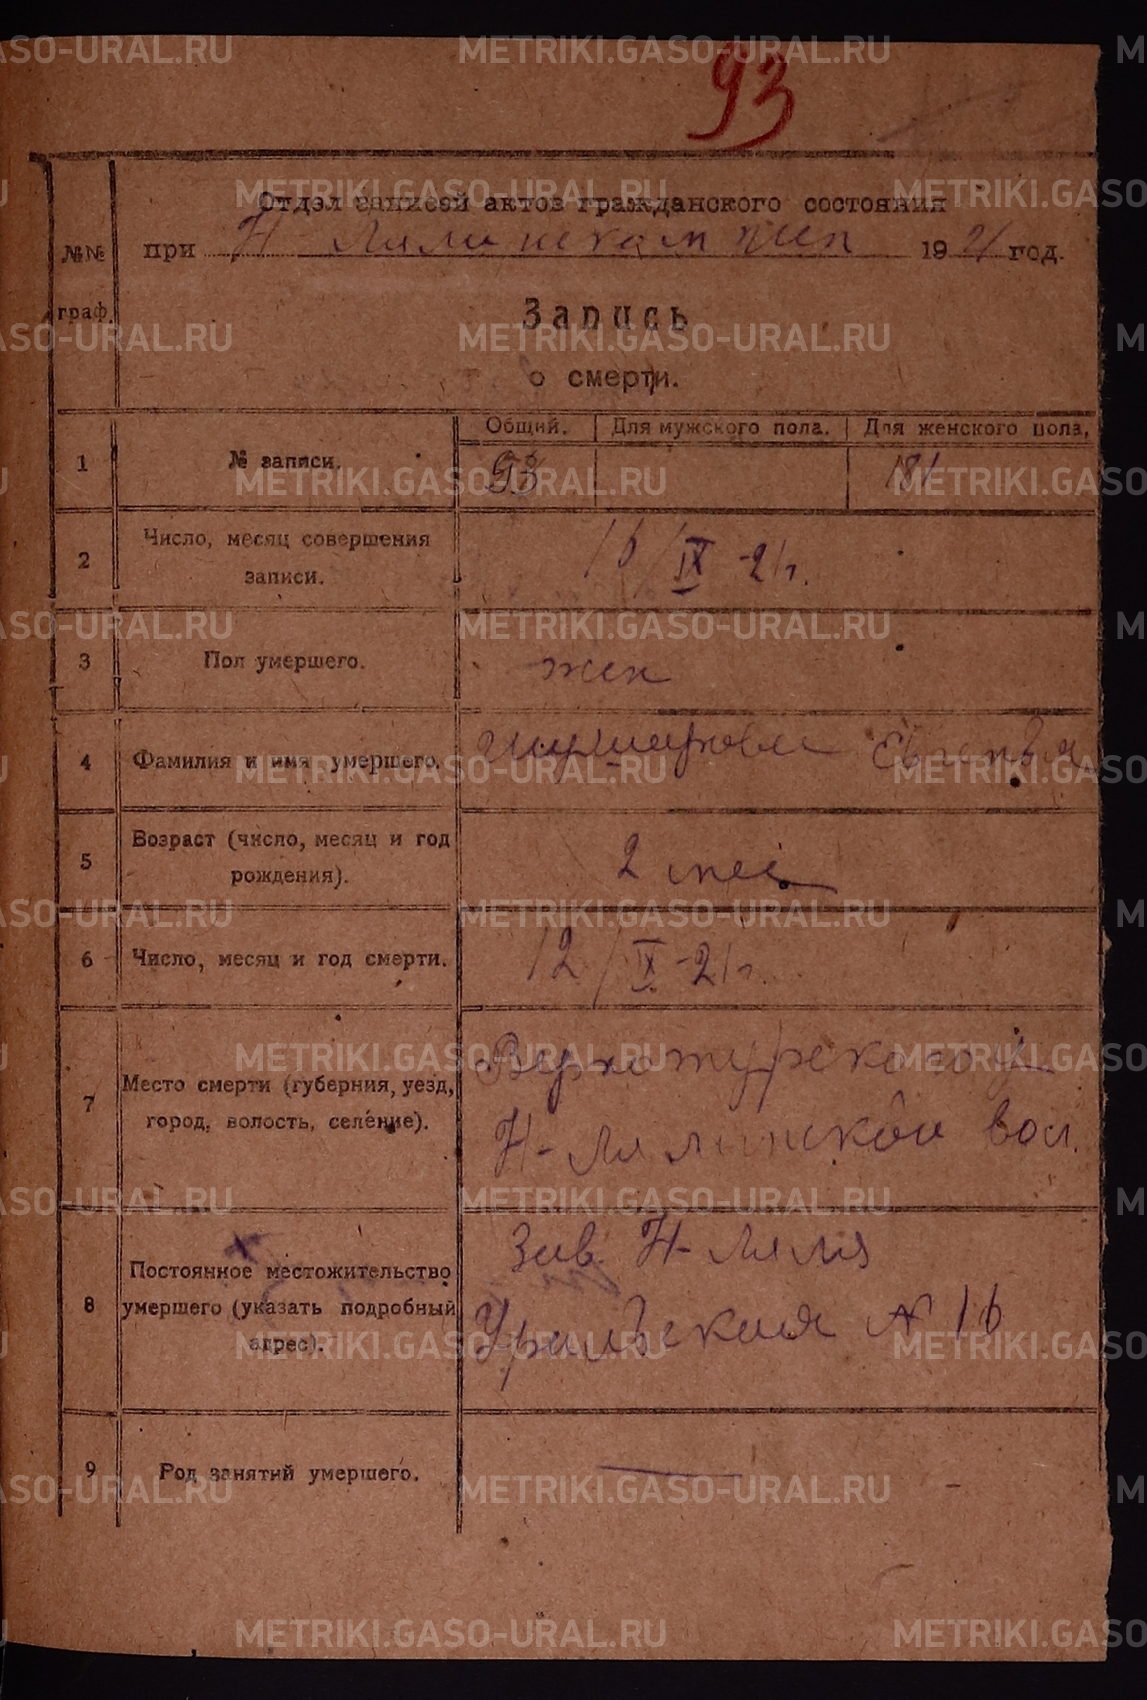 93
Отдел записей актов гражданского состояния
при Н-Лялинском 1921 год.
№№ граф.
Запись
о смерти.
Общий. Для мужского пола. Для женского пола,
1 № записи. 93 181
2 Число, месяц совершения
записи. 16/IX-21г.
3 Пол умершего. жен
4 Фамилия и имя умершего. Евгенья
5 Возраст (число, месяц и год
рождения). 2 мес
6 Число, месяц и год смерти. 12/IX-21г.
7 Место смерти (губерния, уезд,
город, волость, селение).
Верхотурского у
Н-Лялинской вол.
8 Постоянное местожительство
умершего (указать подробный
адрес).
Зав. Н-Ляля
Уральская № 16
9 Род занятий умершего. —
METRIKI.GASO-URAL.RU